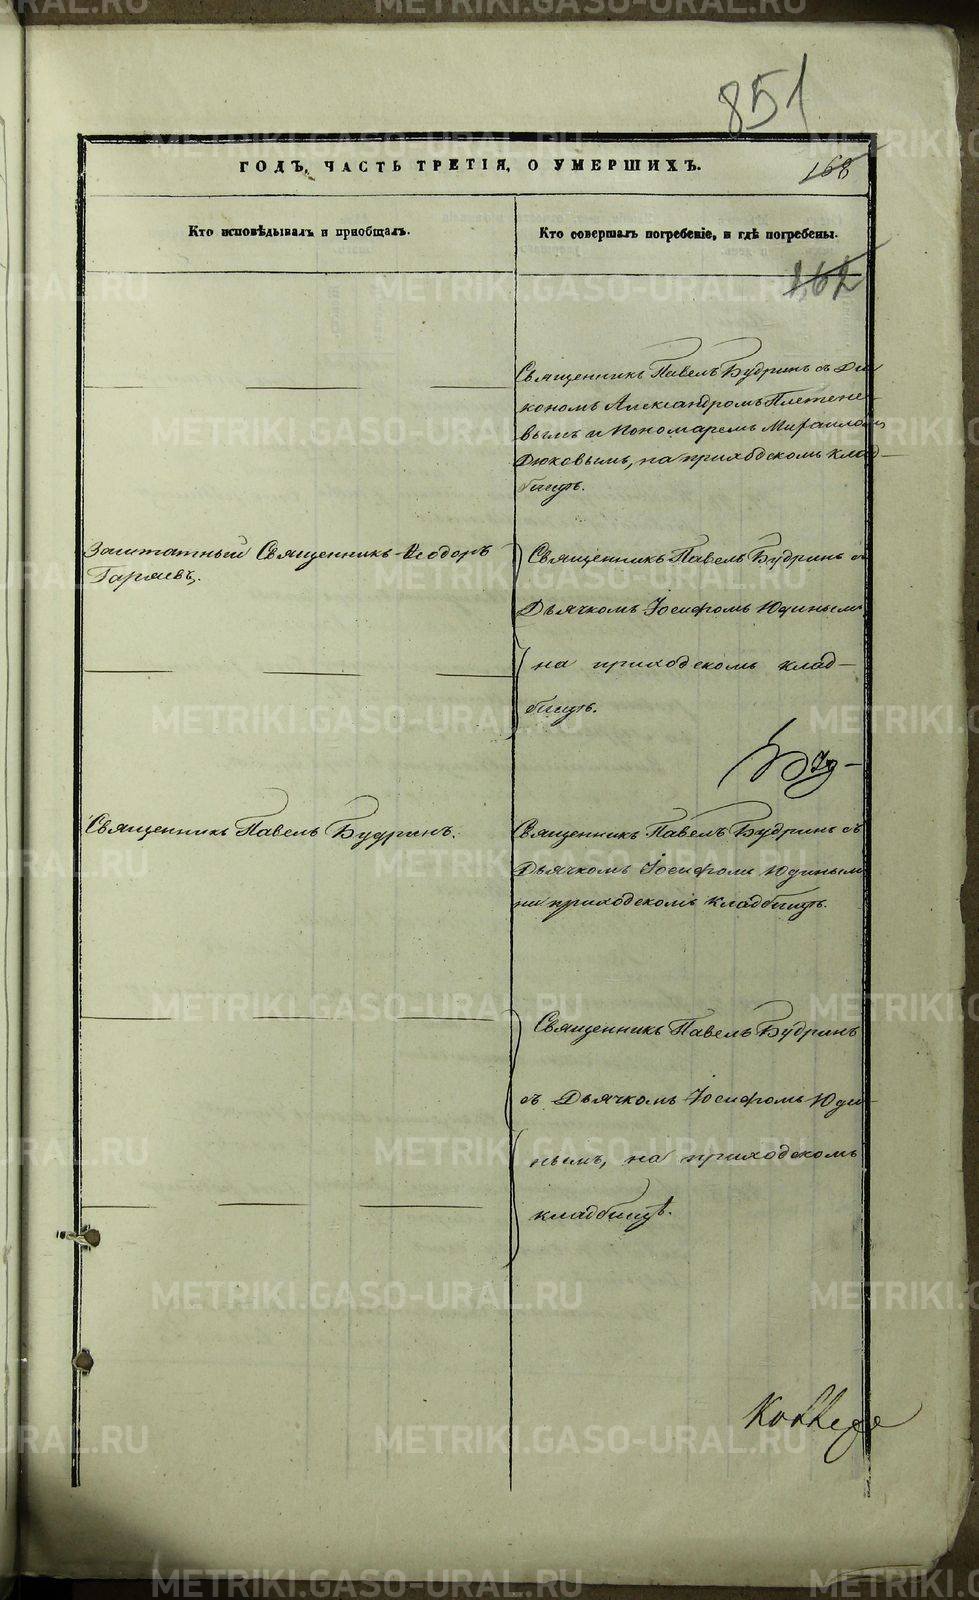 851
ГОДЪ, ЧАСТЬ ТРЕТІЯ, О УМЕРШИХЪ.
168
Кто исповѣдывалъ и пріобщалъ.
Кто совершалъ погребеніе, и гдѣ погребены.
162
Священникъ Павелъ Будринъ съ Диа
кономъ Александромъ Плетене-
вымъ и Пономаремъ Михаиломъ
Дюковымъ, на приходскомъ клад-
бищѣ.
Заштатный Священникъ Ѳеодоръ
Гаряевъ.
Священникъ Павелъ Будринъ съ
Дьячкомъ Іосифомъ Юдинымъ
на приходскомъ клад-
бищѣ.
Священникъ Павелъ Будринъ.
Священникъ Павелъ Будринъ съ
Дьячкомъ Іосифомъ Юдинымъ
на приходскомъ кладбищѣ.
Священникъ Павелъ Будринъ
съ Дьячкомъ Іосифомъ Юди-
нымъ, на приходскомъ
кладбищѣ.
METRIKI.GASO-URAL.RU